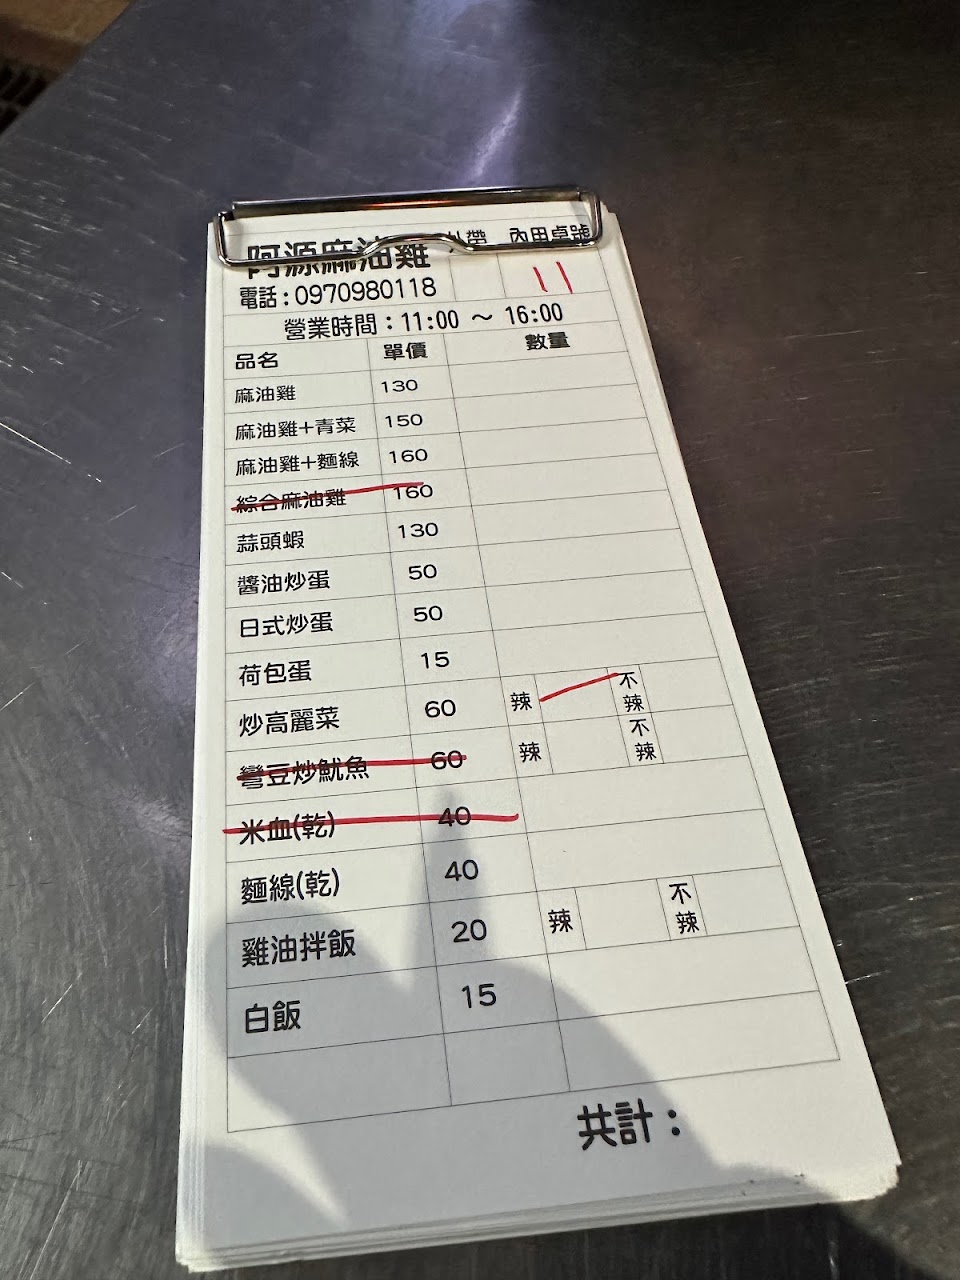 阿源麻油雞 外帶 內用桌號
11
電話:0970980118
營業時間:11:00 ～ 16:00
品名 單價 數量
麻油雞 130
麻油雞+青菜 150
麻油雞+麵線 160
綜合麻油雞 160
蒜頭蝦 130
醬油炒蛋 50
日式炒蛋 50
荷包蛋 15
炒高麗菜 60 辣 不辣
彎豆炒魷魚 60 辣 不辣
米血(乾) 40
麵線(乾) 40
雞油拌飯 20 辣 不辣
白飯 15
共計: